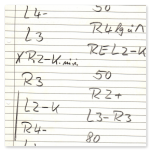 L4- 50
L3 R4
REL2-K
XR2-K.mini
R3 50
R2+
L2-K L3-R3
R4- 80